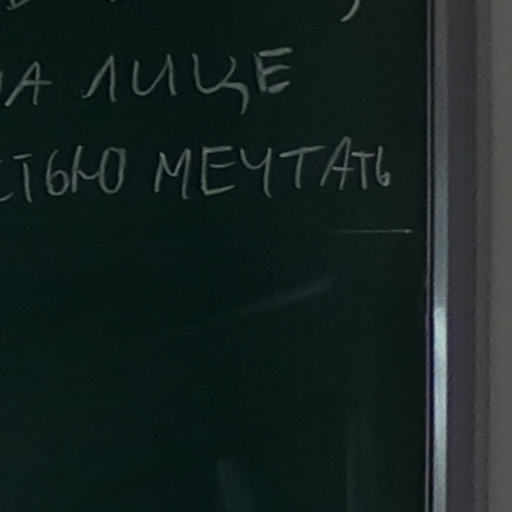 НА ЛИЦЕ
СТЬЮ МЕЧТАТЬ